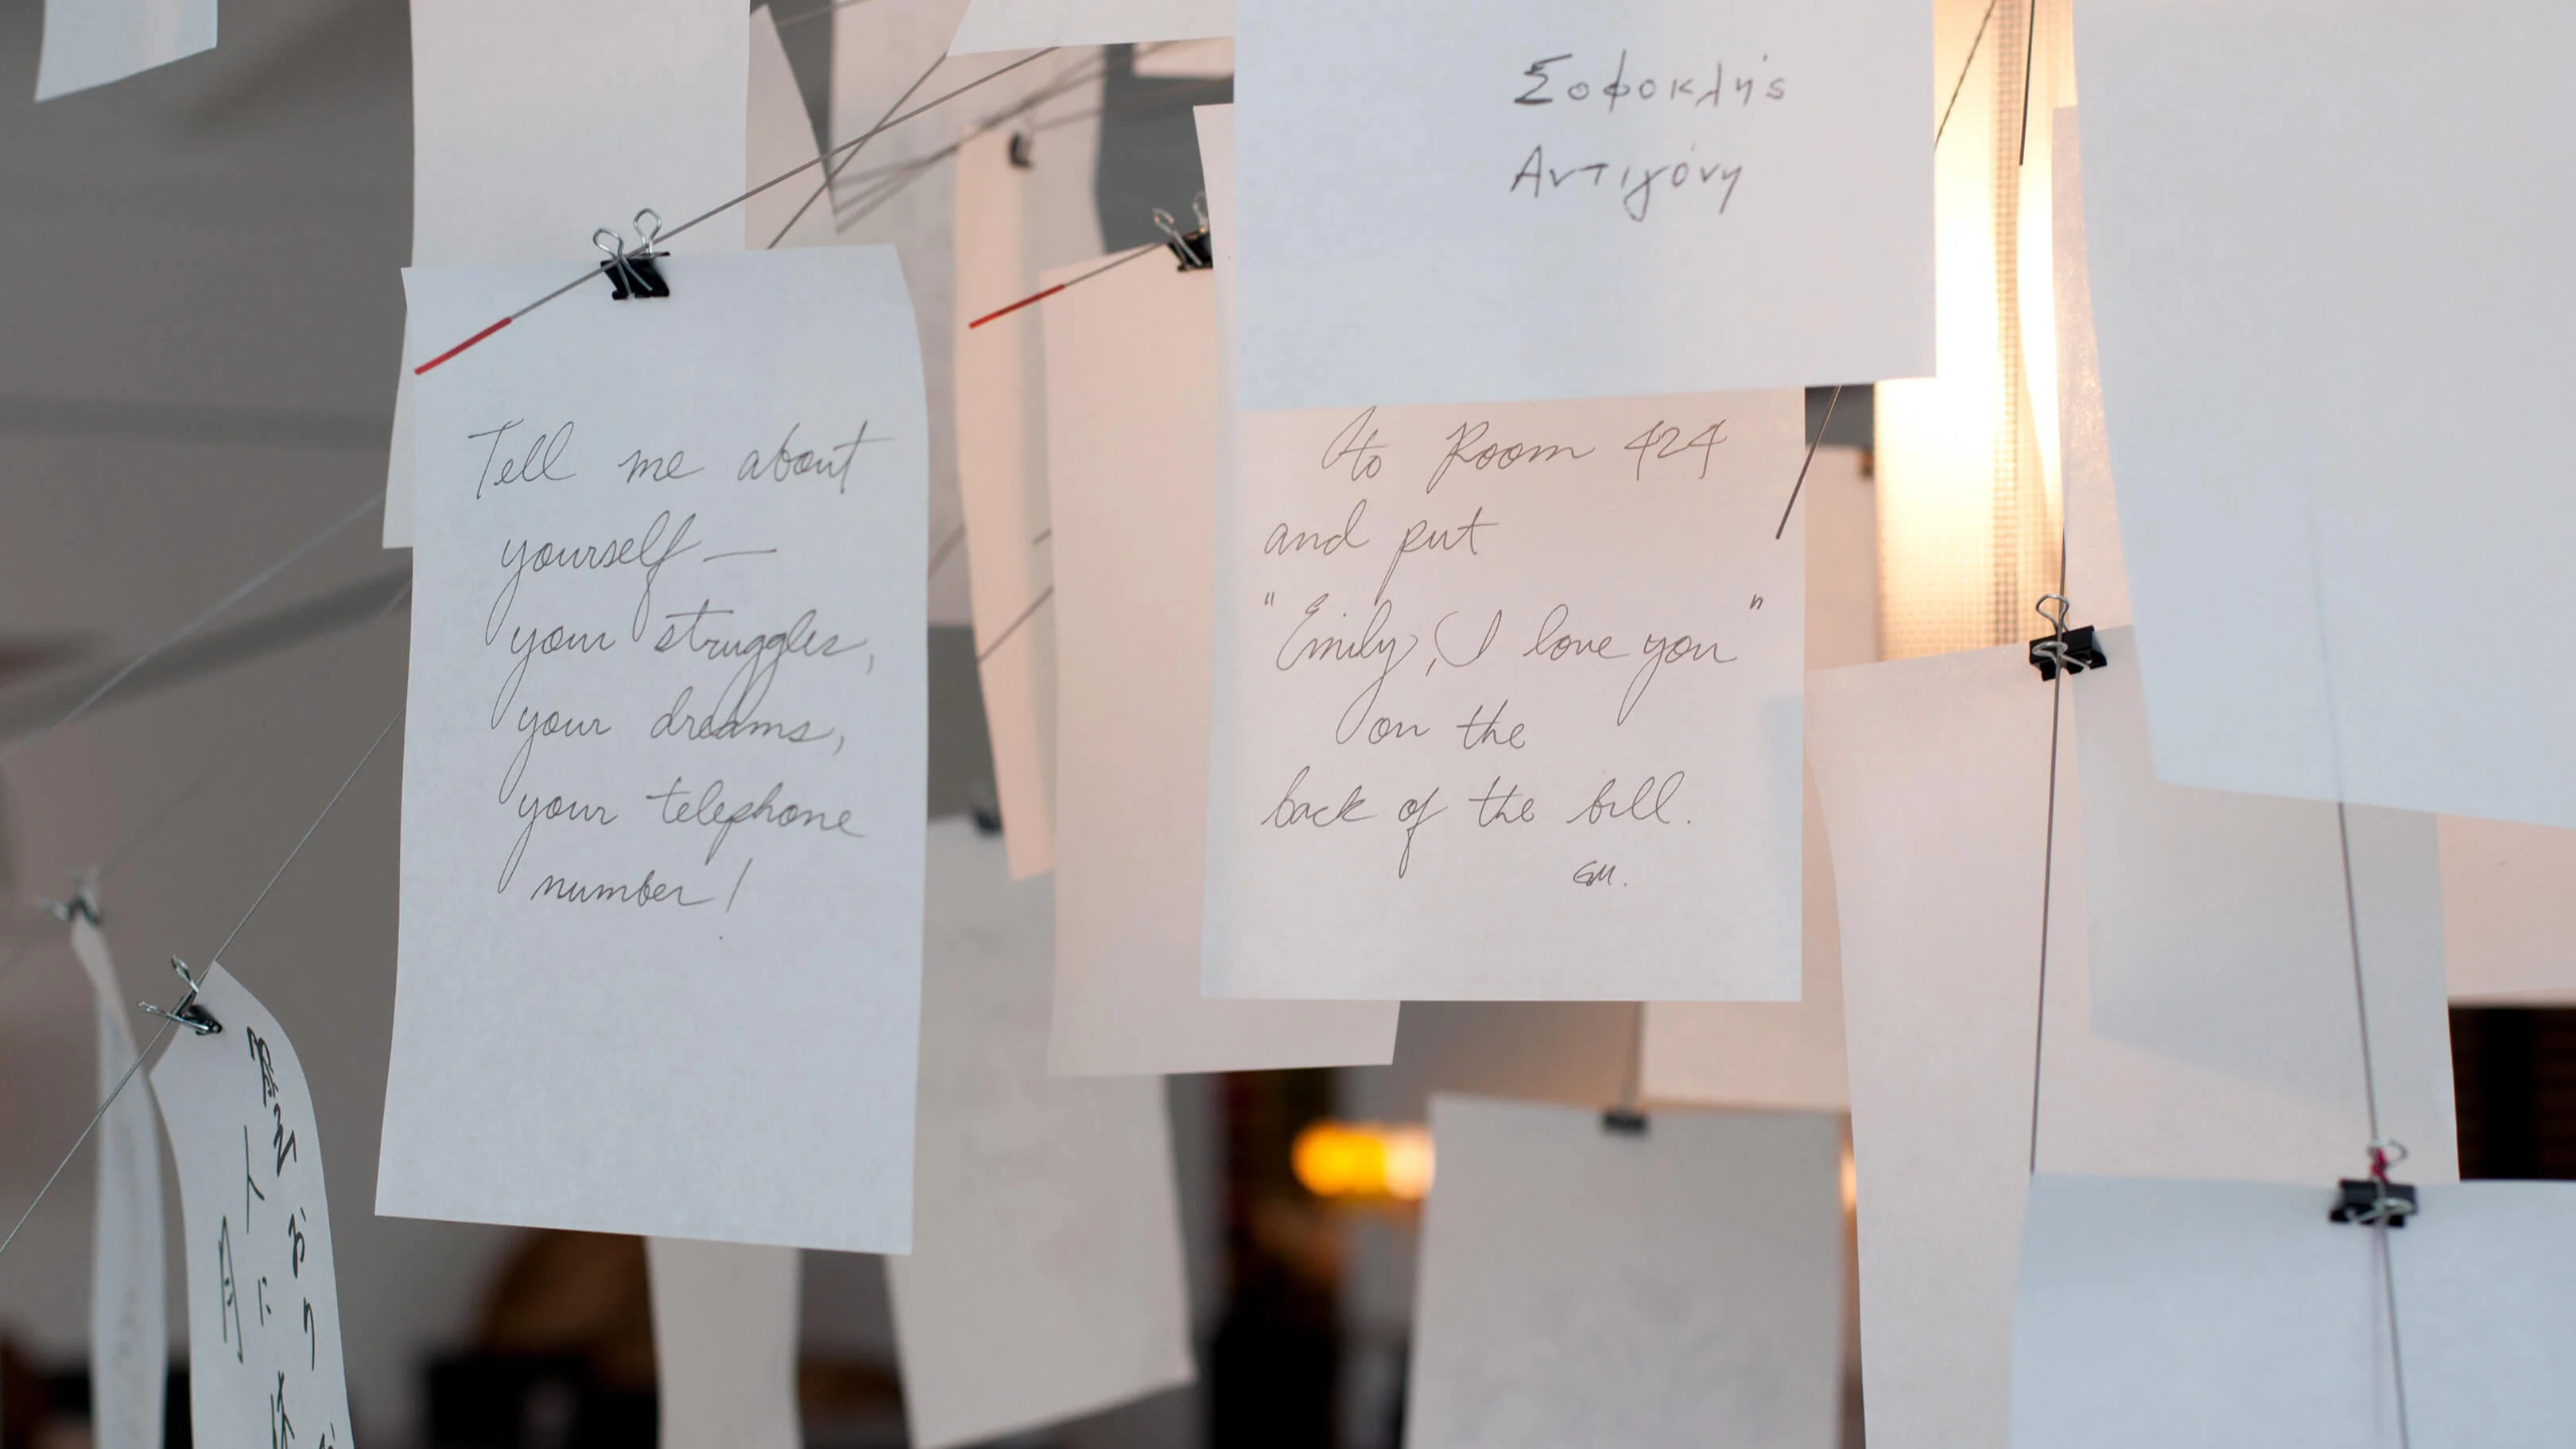 Σοφοκλής
Αντιγόνη
Tell me about
yourself—
your struggles,
your dreams,
your telephone
number!
to Room 424
and put
"Emily, I love you"
on the
back of the bill.
GM.
おり
人に
月